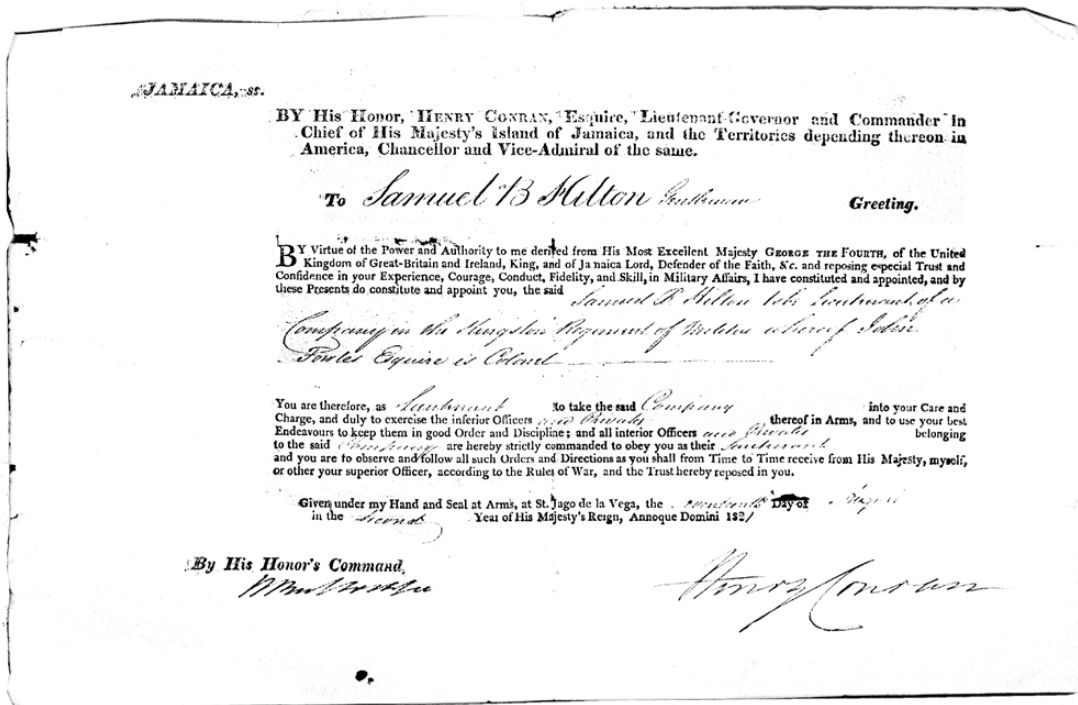 JAMAICA, ss.
BY His Honor, HENRY CONRAN, Esquire, Lieutenant-Governor and Commander in
Chief of His Majesty's Island of Jamaica, and the Territories depending thereon in
America, Chancellor and Vice-Admiral of the same.
To Samuel B Hilton Gentleman Greeting.
BY Virtue of the Power and Authority to me derived from His Most Excellent Majesty GEORGE THE FOURTH, of the United
Kingdom of Great-Britain and Ireland, King, and of Jamaica Lord, Defender of the Faith, &c. and reposing especial Trust and
Confidence in your Experience, Courage, Conduct, Fidelity, and Skill, in Military Affairs, I have constituted and appointed, and by
these Presents do constitute and appoint you, the said Samuel B. Hilton to be Lieutenant of a
Company in the Kingston Regiment of Militia whereof John
Fowles Esquire is Colonel
You are therefore, as Lieutenant to take the said Company into your Care and
Charge, and duly to exercise the inferior Officers and Privates thereof in Arms, and to use your best
Endeavours to keep them in good Order and Discipline; and all inferior Officers and Privates belonging
to the said Company are hereby strictly commanded to obey you as their Lieutenant
and you are to observe and follow all such Orders and Directions as you shall from Time to Time receive from His Majesty, myself,
or other your superior Officer, according to the Rules of War, and the Trust hereby reposed in you.
Given under my Hand and Seal at Arms, at St. Jago de la Vega, the Day of August
in the Second Year of His Majesty's Reign, Annoque Domini 1821
By His Honor's Command,
Henry Conran